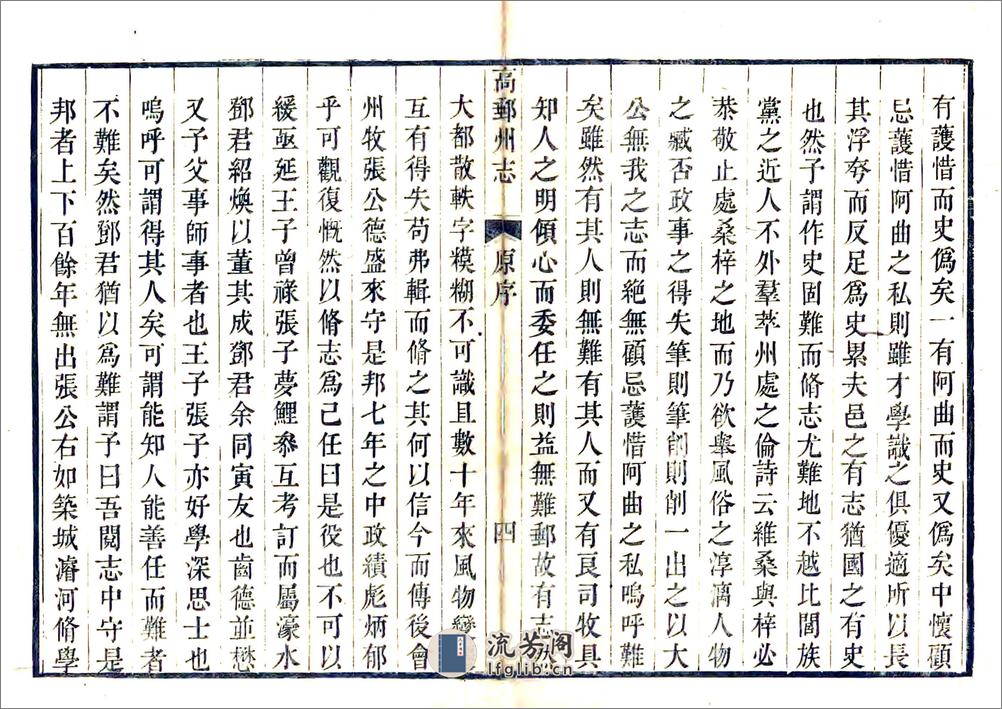 有護惜而史僞矣一有阿曲而史又僞矣中懷顧
忌護惜阿曲之私則雖才學識之俱優適所以長
其浮夸而反足爲史累夫邑之有志猶國之有史
也然子謂作史固難而脩志尤難地不越比閭族
黨之近人不外羣萃州處之倫詩云維桑與梓必
恭敬止處桑梓之地而乃欲舉風俗之淳漓人物
之臧否政事之得失筆則筆削則削一出之以大
公無我之志而絕無顧忌護惜阿曲之私嗚呼難
矣雖然有其人則無難有其人而又有良司牧具
知人之明傾心而委任之則益無難郵故有志
高郵州志
原序
四
大都散軼字糢糊不可識且數十年來風物變
互有得失苟弗輯而脩之其何以信今而傳後會
州牧張公德盛來守是邦七年之中政績彪炳郁
乎可觀復慨然以脩志爲己任曰是役也不可以
緩亟延王子曾祿張子夢鯉叅互考訂而屬濠水
鄧君紹煥以董其成鄧君余同寅友也齒德並懋
又予父事師事者也王子張子亦好學深思士也
嗚呼可謂得其人矣可謂能知人能善任而難者
不難矣然鄧君猶以爲難謂予曰吾閱志中守是
邦者上下百餘年無出張公右如築城濬河脩學
流芳阁
lfglib.cn